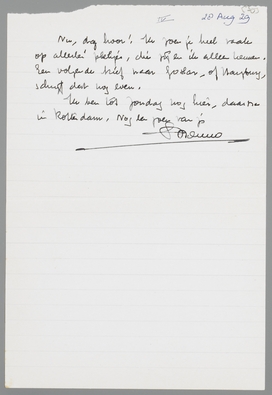 28 Aug 29
Nu, dag hoor! Ik zoen je heel vaak
op allerlei plekjes, die jij en ik alleen kennen.
Een volgende brief naar of Hamburg,
schrijf dat nog even.
Ik ben tot zondag nog hier, daarna
in Rotterdam. Nog een zoen van je